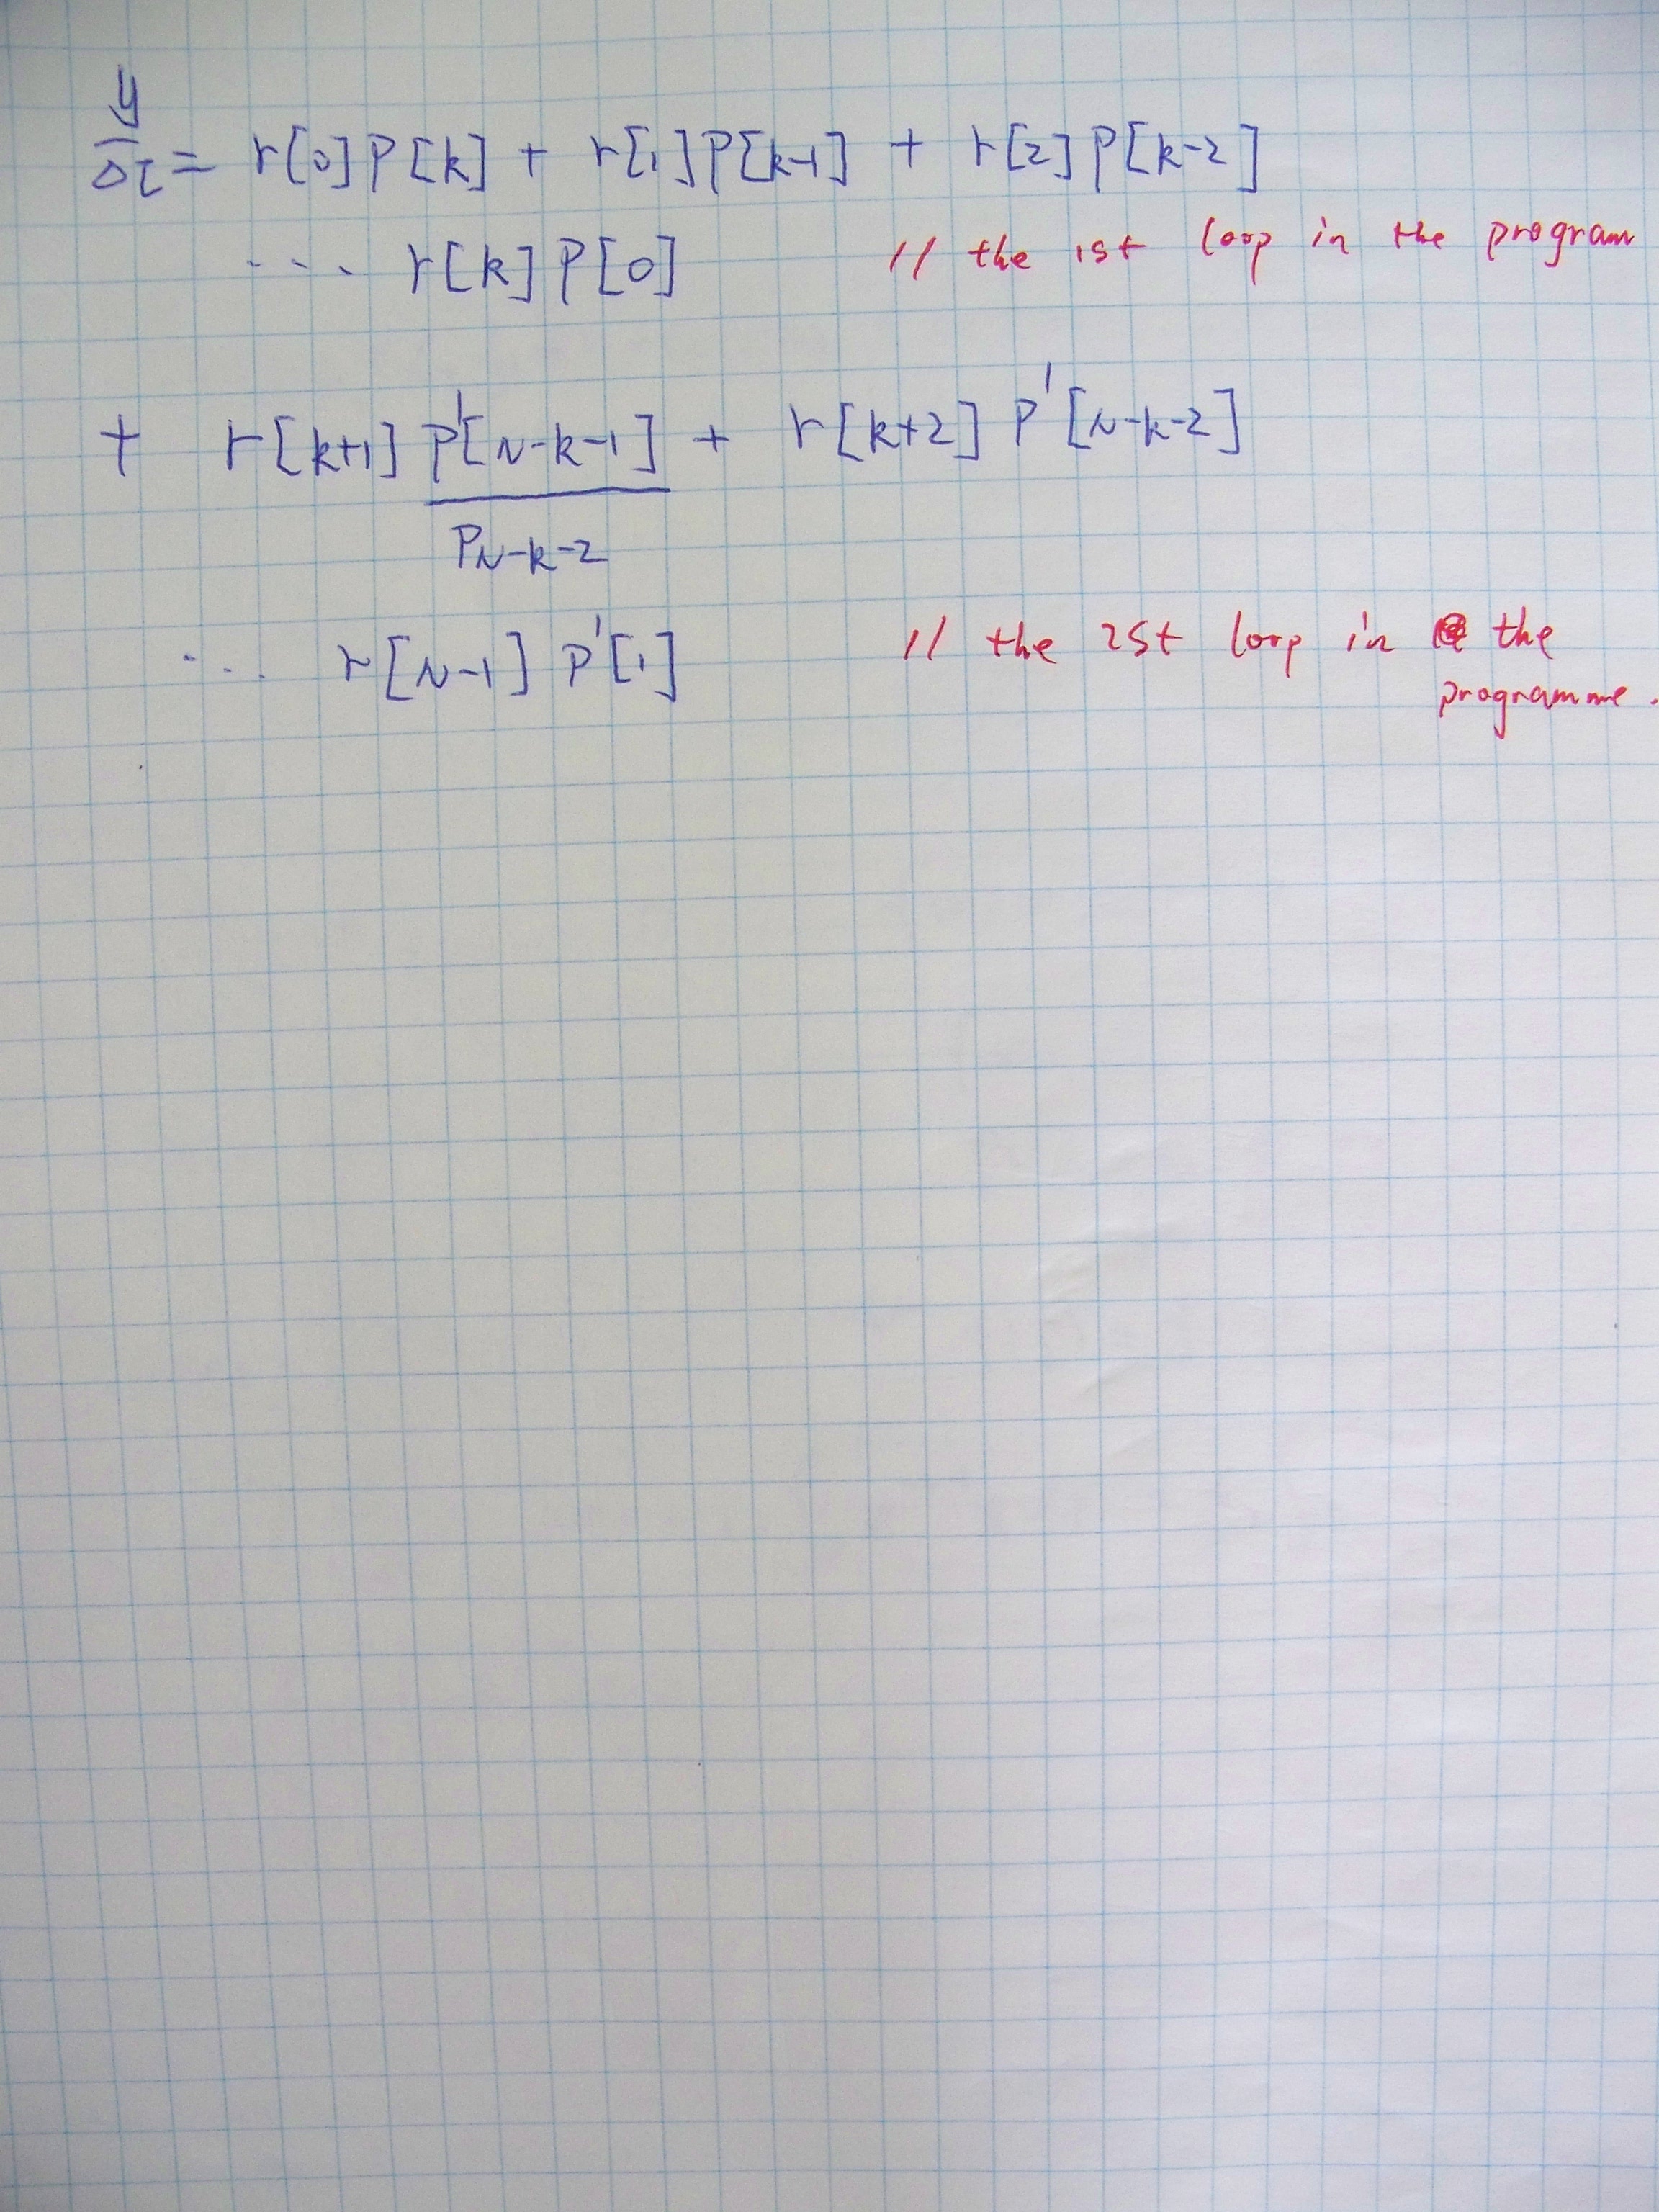 y
Δτ = r[0]P[k] + r[1]P[k-1] + r[2]P[k-2]
... r[k]P[0] // the 1st loop in the program
+ r[k+1] P'[N-k-1] + r[k+2] P'[N-k-2]
PN-k-2
... r[N-1] P'[1] // the 2st loop in the
programme.